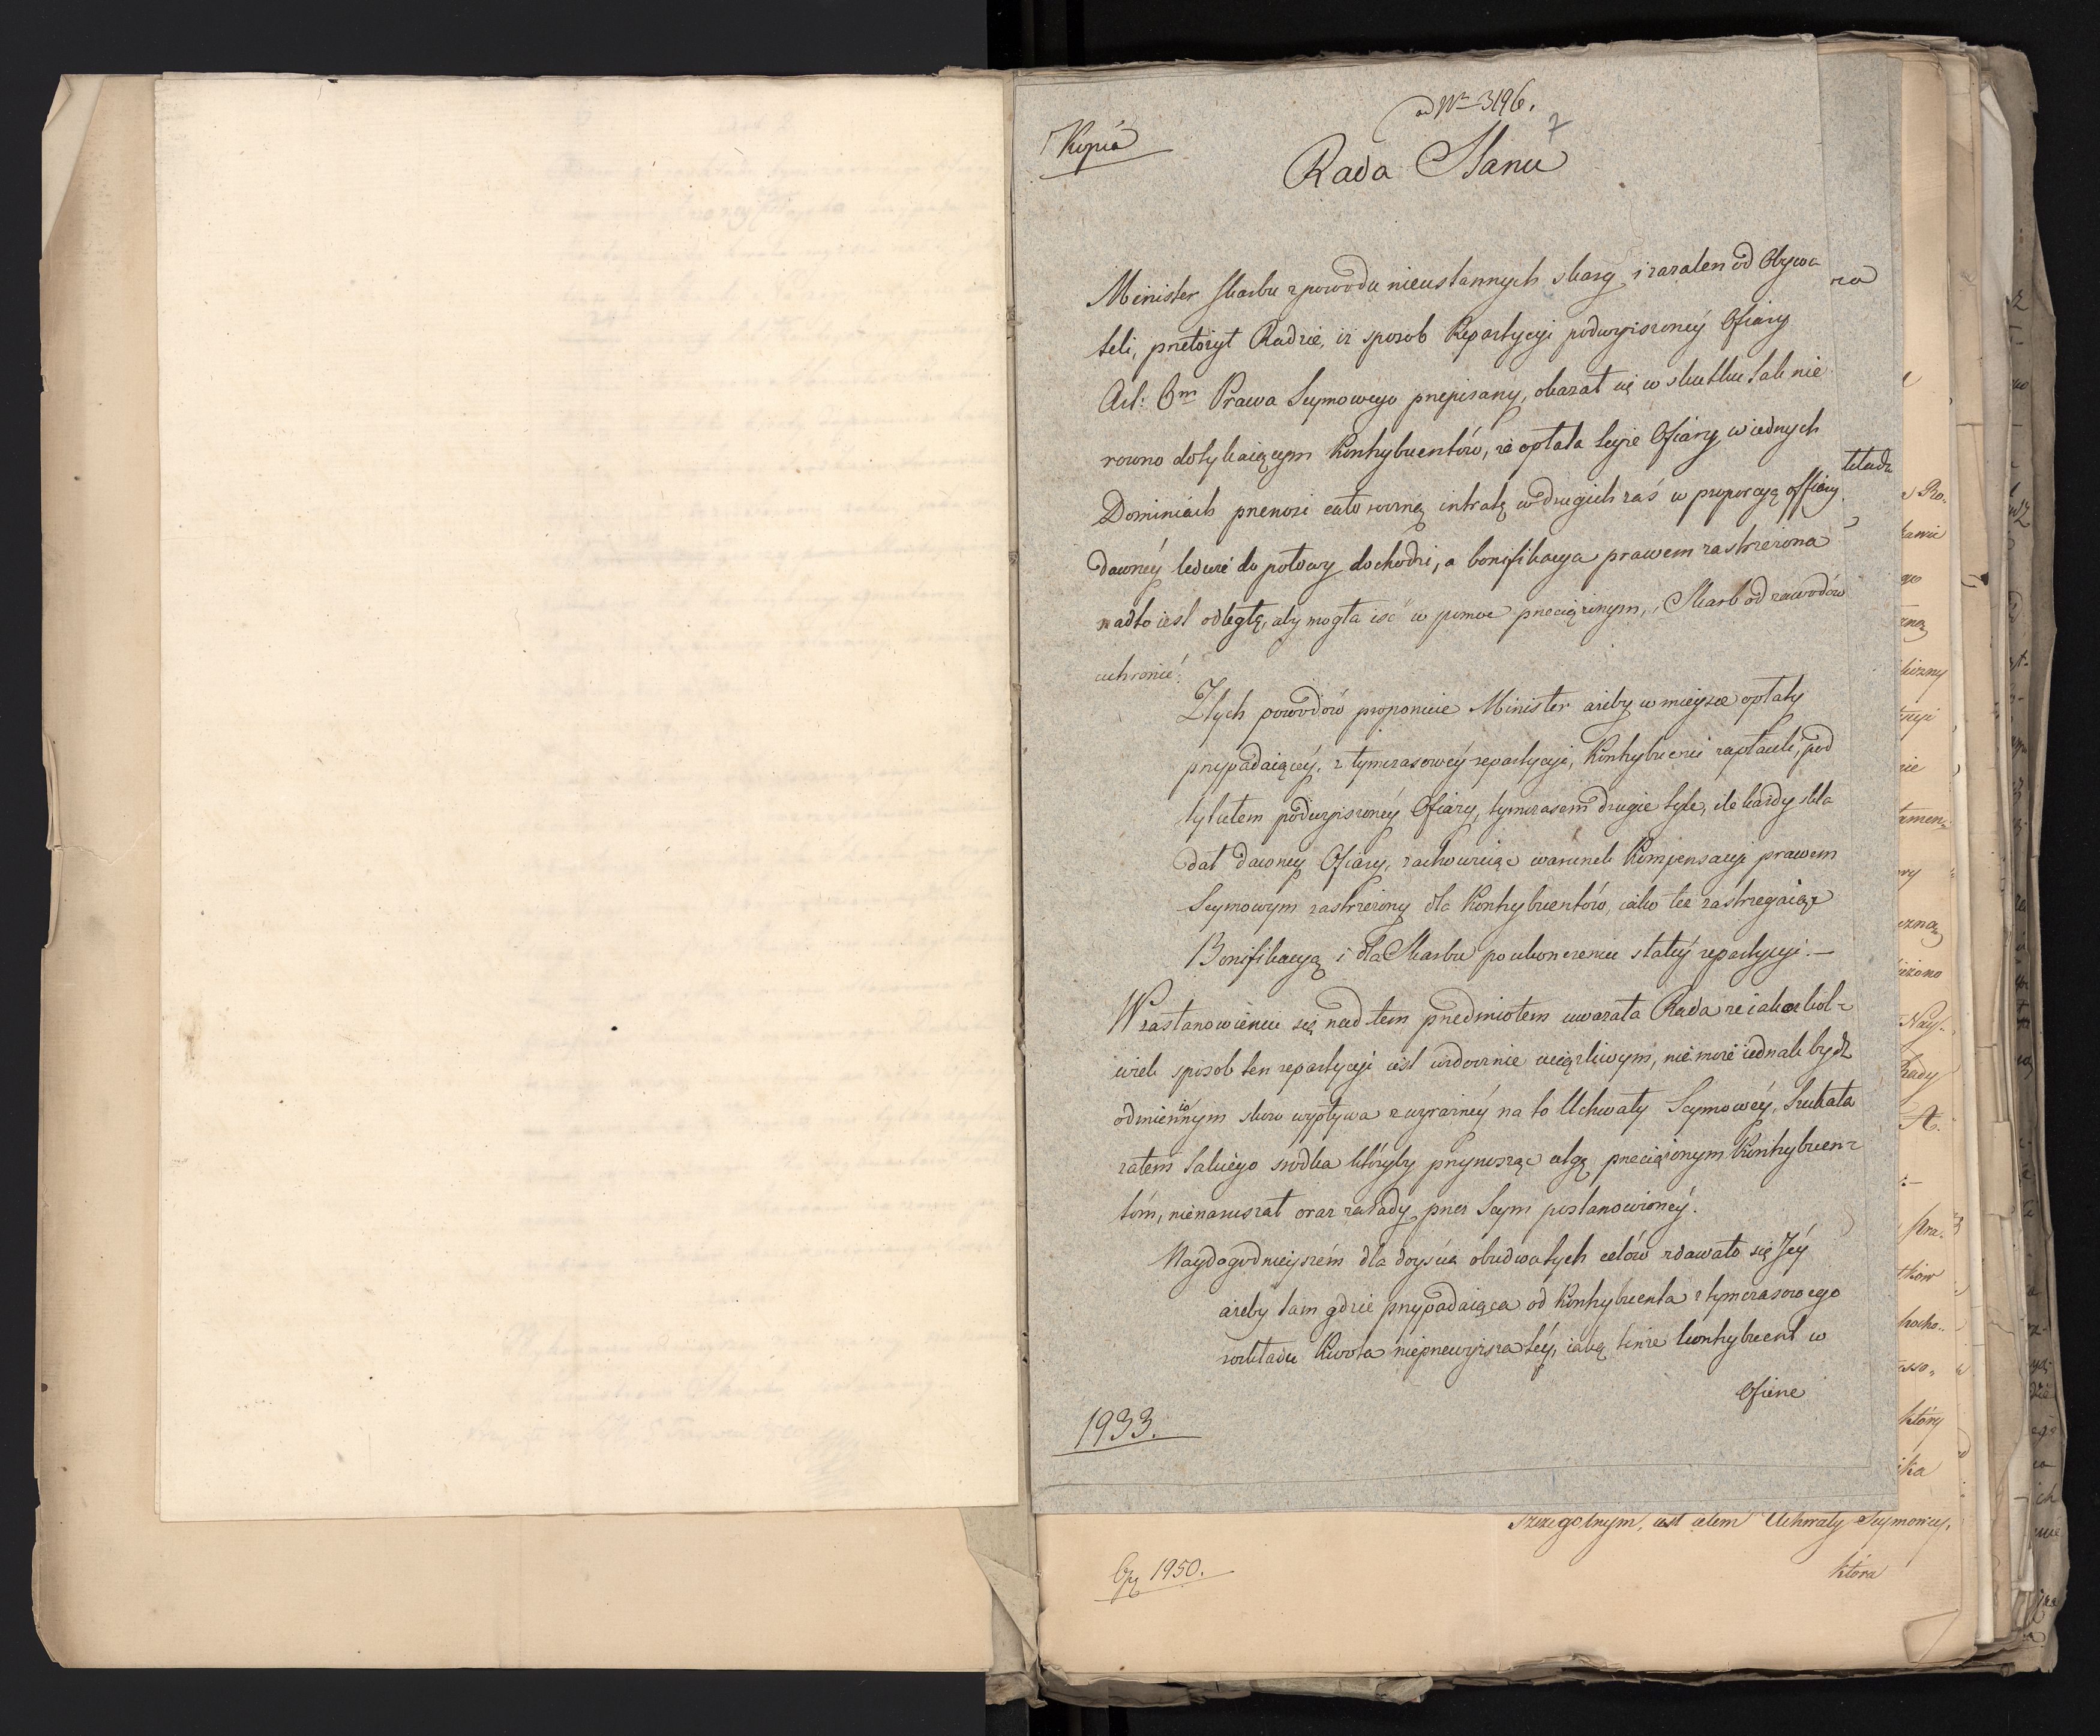 ad Nr 3196.
7
Kopia
Rada Stanu
Minister Skarbu z powodu nieustannych skarg i zazalen od Obywa
teli, przełożył Radzie, iz sposob Repartycyi podwyzszoney Ofiary
Art: 6m Prawa Seymowego przepisany, okazał się w skutku tak nie
rowno dotykaiącym Kontrybuentów, że opłata teyże Ofiary w iednych
Dominiach przenosi całoroczną intratę w drugich zaś w proporcyą offiary
dawnéy ledwie do połowy dochodzi, a bonifikacya prawem zastrzeżona
nadto iest odległą, aby mogła iść w pomoc przeciążonym, i Skarb od zawodów
uchronić.
Z tych powodów proponuie Minister ażeby w mieysce opłaty
przypadaiącéy, z tymczasowéy repartycyi, Kontrybuenci zapłacili, pod
tytułem podwyzszonéy Ofiary, tymczasem drugie tyle, ile każdy skła
dał dawney Ofiary, zachowuiąc warunek Kompensacyi prawem
Seymowym zastrzeżony dla Kontrybuentów, iako też zastrzegaiąc
Bonifikacyą i dla Skarbu po ukonczeniu stałéy repartycyi. —
W zastanowieniu się nad tem przedmiotem uważała Rada że iakozkol=
wiek sposob ten repartycyi iest widocznie uciążliwym, nie może iednak bydź
odmienionym skoro wypływa z wyraźnéy na to Uchwały Seymowéy, Szukała
zatem takiego srodka któryby przynosząc ulgę przeciążonym Kontrybuen=
tóm, nienaruszał oraz zasady przez Seym postanowionéy.
Naydogodnieyszém dla doyścia obudwu tych celów zdawało się Jéy
ażeby tam gdzie przypadaiąca od Kontrybuenta z tymczasowego
rozkładu Kwota nieprzewyższa téy, iaką tenże kontrybuent w
Ofierze
1933.
szczegolnym, iest celem Uchwały Seymowey,
która
1950.